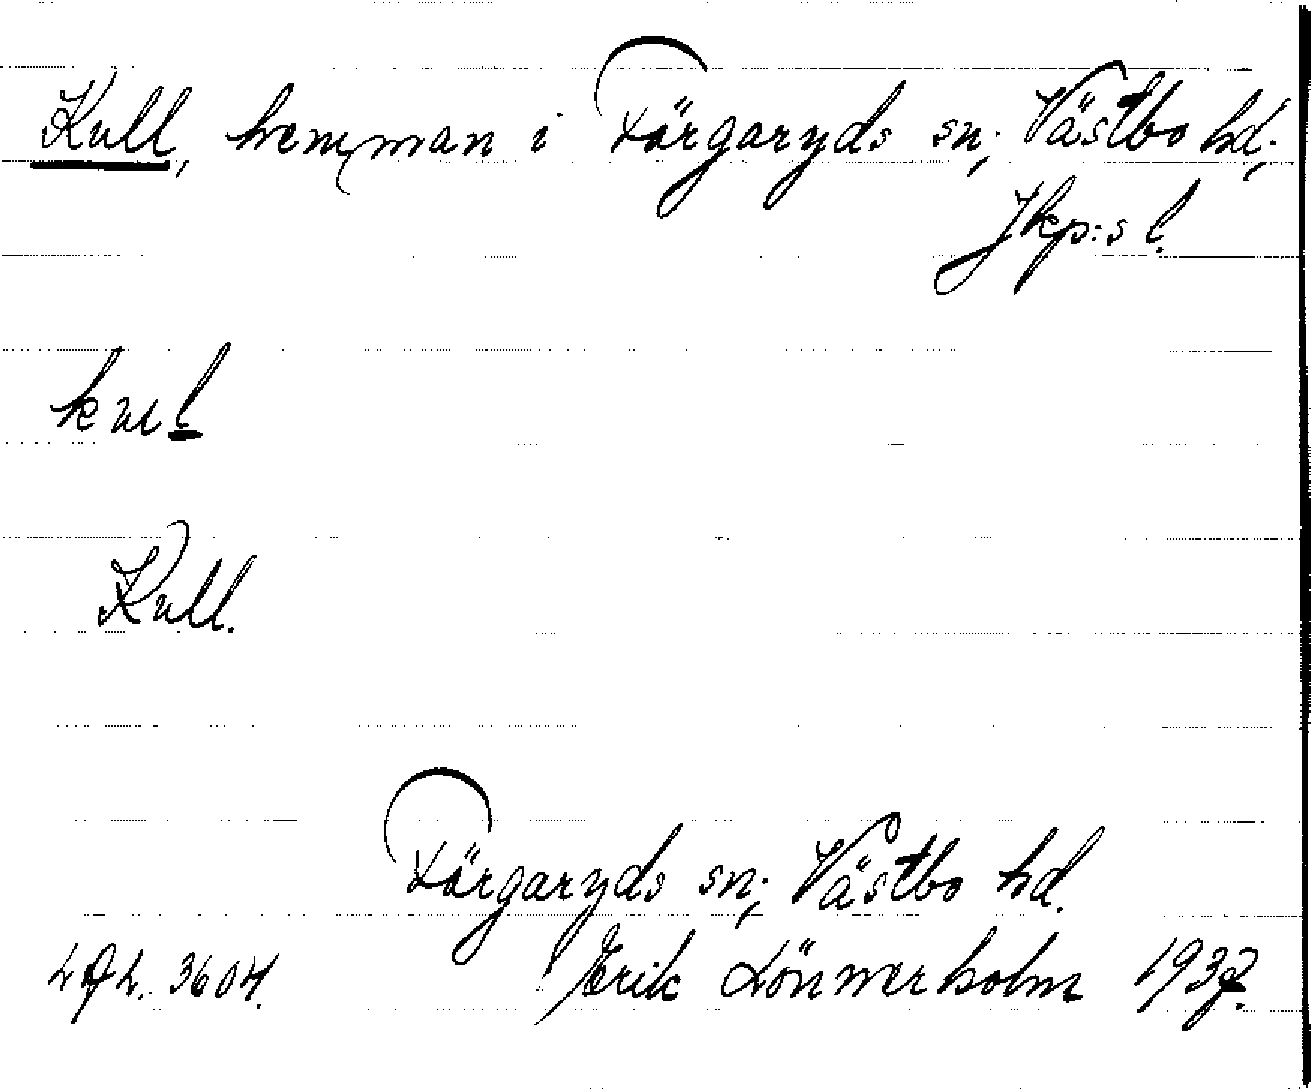 Kull, hemman i Färgaryds sn; Västbo hd;
Jkp:s l.
kul
Kull.
Färgaryds sn; Västbo hd.
3604.
Erik Lönnerholm 1937.